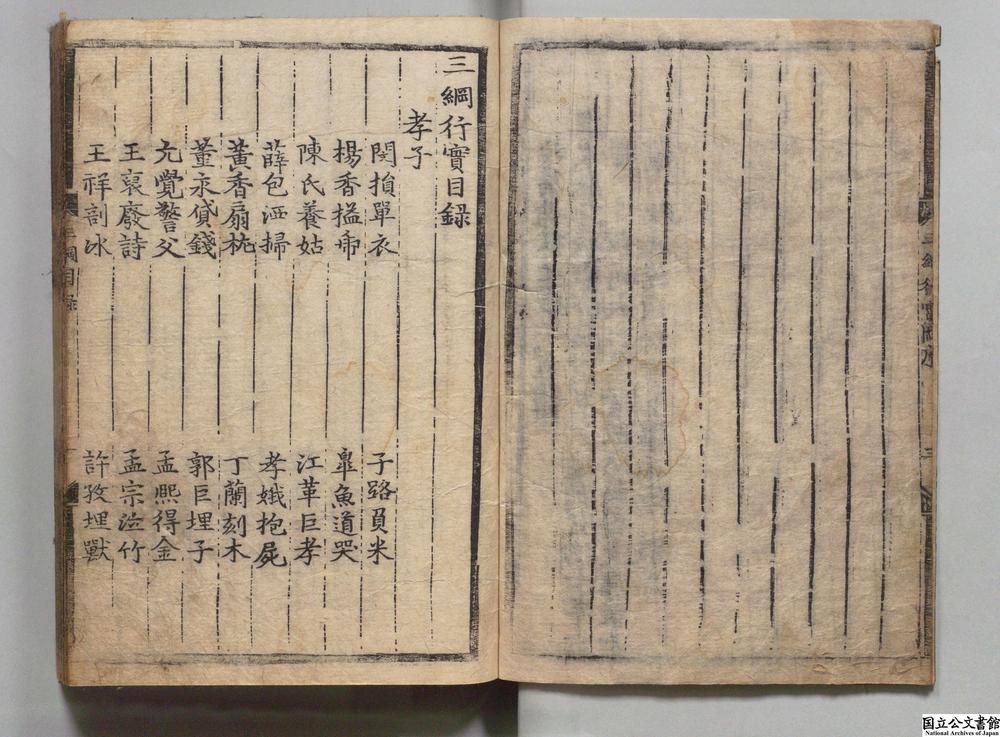 三綱行實目録
孝子
閔損單衣
子路負米
楊香搤虎
皐魚道哭
陳氏養姑
江革巨孝
薛包洒掃
孝娥抱屍
黃香扇枕
丁蘭刻木
董永貸錢
郭巨埋子
元覺警父
孟熙得金
王裒廢詩
孟宗泣竹
王祥剖冰
許孜埋獸
三綱目录
三綱行實
国立公文書館
National Archives of Japan